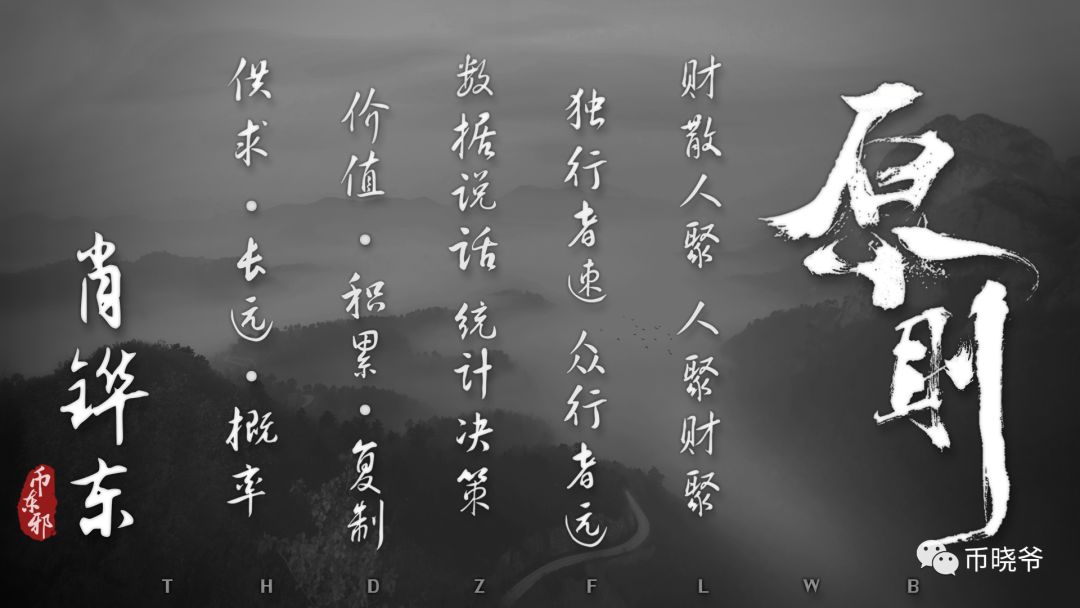 原则
财散人聚 人聚财聚
独行者速 众行者远
数据说话 统计决策
价值·积累·复制
供求·长远·概率
肖铧东
币东邪
THDZFLWB
币晓爷